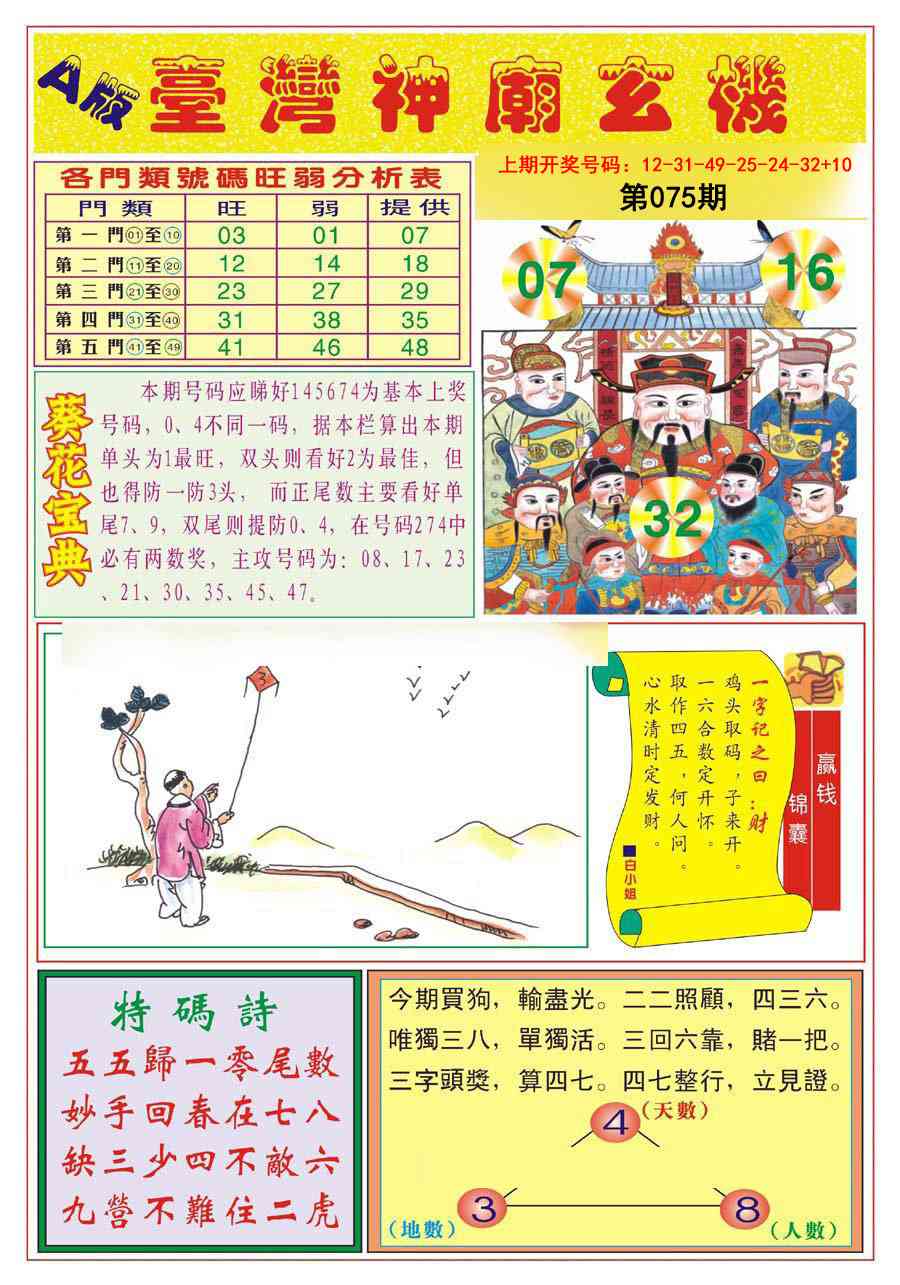 A版
臺灣神廟玄機
上期开奖号码：12-31-49-25-24-32+10
第075期
各門類號碼旺弱分析表
門類 旺 弱 提供
第一門①至⑩ 03 01 07
第二門⑪至⑳ 12 14 18
第三門㉑至㉚ 23 27 29
第四門㉛至㊵ 31 38 35
第五門㊶至㊾ 41 46 48
07
16
32
葵花宝典
本期号码应睇好145674为基本上奖
号码，0、4不同一码，据本栏算出本期
单头为1最旺，双头则看好2为最佳，但
也得防一防3头， 而正尾数主要看好单
尾7、9，双尾则提防0、4，在号码274中
必有两数奖，主攻号码为：08、17、23
、21、30、35、45、47。
3
一字记之曰：财
鸡头取码，子来开。
一六合数定开怀。
取作四五，何人问。
心水清时定发财。
■白小姐
赢钱
锦囊
特碼詩
五五歸一零尾數
妙手回春在七八
缺三少四不敵六
九營不難住二虎
今期買狗，輸盡光。二二照顧，四三六。
唯獨三八，單獨活。三回六靠，賭一把。
三字頭獎，算四七。四七整行，立見證。
4
(天數)
3
8
(地數)
(人數)